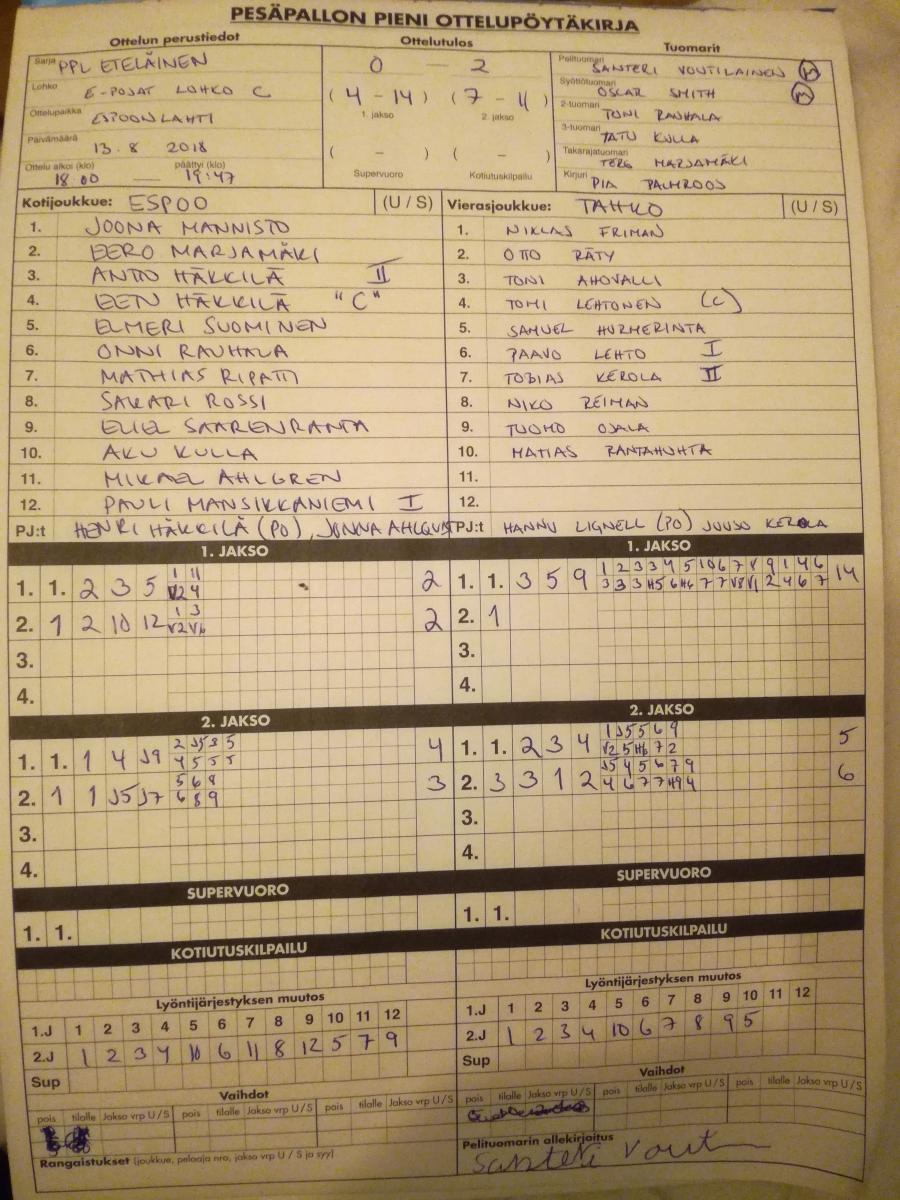 PESÄPALLON PIENI OTTELUPÖYTÄKIRJA
Ottelun perustiedot
Sarja PPL ETELÄINEN
Lohko E-POJAT LOHKO C
Ottelupaikka ESPOONLAHTI
Päivämäärä 13.8 2018
Ottelu alkoi (klo) päättyi (klo)
18:00 — 19:47
Ottelutulos
0 — 2
(4 - 14) (7 - 11)
1. jakso 2. jakso
( - ) ( - )
Supervuoro Kotiutuskilpailu
Tuomarit
Pelituomari SANTERI VOUTILAINEN
Syöttötuomari OSCAR SMITH
2-tuomari TONI RAUHALA
3-tuomari TATU KULLA
Takarajatuomari TERO MARJAMÄKI
Kirjuri PIA PALMROOS
Kotijoukkue: ESPOO (U / S)
1. JOONA MANNISTO
2. EERO MARJAMÄKI
3. ANTTO HÄKKILÄ II
4. EETU HÄKKILÄ "C"
5. ELMERI SUOMINEN
6. ONNI RAUHALA
7. MATHIAS RIPATTI
8. SAKARI ROSSI
9. ELIEL SAARENRANTA
10. AKU KULLA
11. MIKAEL AHLGREN
12. PAULI MANSIKKANIEMI I
PJ:t HENRI HÄKKILÄ (PO), JONNA
Vierasjoukkue: TAHKO (U / S)
1. NIKLAS FRIMAN
2. OTTO RÄTY
3. TONI AHOVALLI
4. TOMI LEHTONEN (C)
5. SAMUEL HURMERINTA
6. PAAVO LEHTO I
7. TOBIAS KEROLA II
8. NIKO REIMAN
9. TUOMO OJALA
10. MATIAS RANTAHUHTA
11.
12.
PJ:t HANNU LIGNELL (PO) JUUSO KEROLA
1. JAKSO
1 11
1. 1. 2 3 5 V2 4 2
1 3
2. 1 2 10 12 V2 V6 2
3.
4.
1. JAKSO
1 2 3 3 4 5 10 6 7 V 9 1 4 6
1. 1. 3 5 9 3 3 3 H5 6 H6 7 7 V8 V1 2 4 6 7 14
2. 1
3.
4.
2. JAKSO
2 J5 3 5
1. 1. 1 4 J9 4 5 5 5 4
5 6 8
2. 1 1 J5 J7 6 8 9 3
3.
4.
2. JAKSO
1 J5 5 6 9
1. 1. 2 3 4 V2 5 H6 7 2 5
J5 4 5 6 7 9
2. 3 3 1 2 4 6 7 7 H9 4 6
3.
4.
SUPERVUORO
1. 1.
SUPERVUORO
1. 1.
KOTIUTUSKILPAILU
KOTIUTUSKILPAILU
Lyöntijärjestyksen muutos
1.J 1 2 3 4 5 6 7 8 9 10 11 12
2.J 1 2 3 4 10 6 11 8 12 5 7 9
Sup
Lyöntijärjestyksen muutos
1.J 1 2 3 4 5 6 7 8 9 10 11 12
2.J 1 2 3 4 10 6 7 8 9 5
Sup
Vaihdot
pois tilalle Jakso vrp U / S pois tilalle Jakso vrp U / S pois tilalle Jakso vrp U / S
Rangaistukset (joukkue, pelaaja nro, jakso vrp U / S ja syy)
Vaihdot
pois tilalle Jakso vrp U / S pois tilalle Jakso vrp U / S pois tilalle Jakso vrp U / S
Pelituomarin allekirjoitus
Santeri Vout